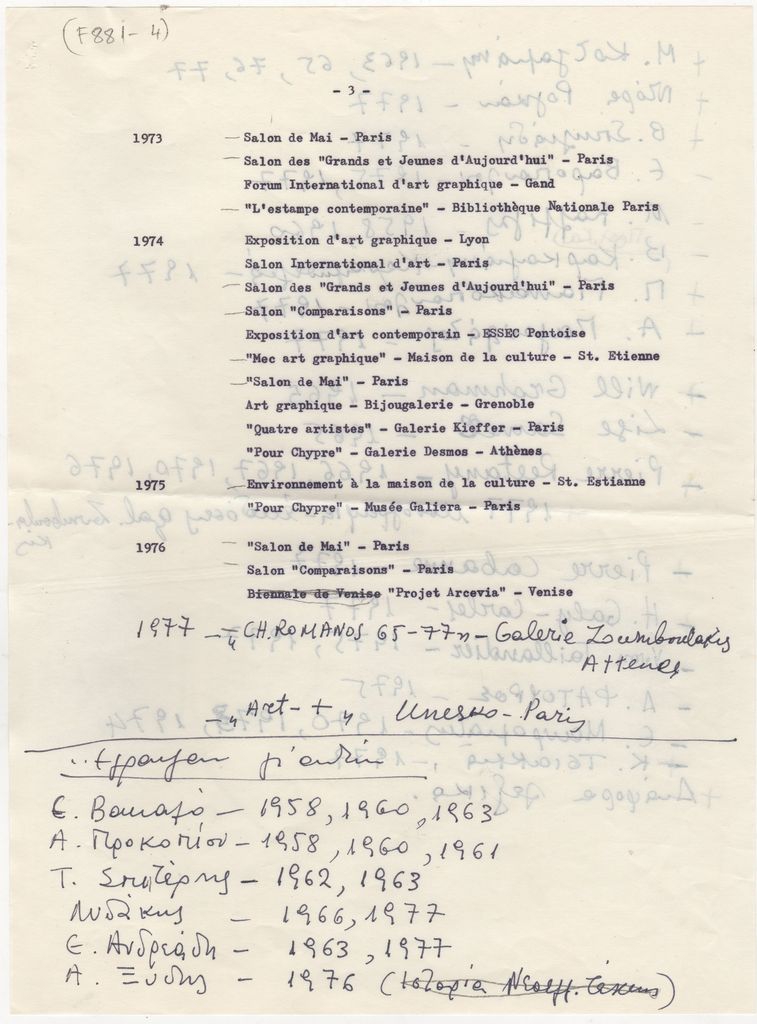 (F881-4)
- 3 -
1973 — Salon de Mai - Paris
— Salon des "Grands et Jeunes d'Aujourd'hui" - Paris
Forum International d'art graphique - Gand
— "L'estampe contemporaine" - Bibliothèque Nationale Paris
1974 Exposition d'art graphique - Lyon
Salon International d'art - Paris
— Salon des "Grands et Jeunes d'Aujourd'hui" - Paris
— Salon "Comparaisons" - Paris
Exposition d'art contemporain - ESSEC Pontoise
— "Mec art graphique" - Maison de la culture - St. Etienne
— "Salon de Mai" - Paris
Art graphique - Bijougalerie - Grenoble
"Quatre artistes" - Galerie Kieffer - Paris
"Pour Chypre" - Galerie Desmos - Athènes
1975 — Environnement à la maison de la culture - St. Estianne
"Pour Chypre" - Musée Galiera - Paris
1976 "Salon de Mai" - Paris
Salon "Comparaisons" - Paris
Biennale de Venise "Projet Arcevia" - Venise
1977 — "CH. ROMANOS 65-77" - Galerie Zoumboulakis
Athenes
— "Art - +" Unesko - Paris
..Έγραψαν γι' αυτόν
Ε. Βακαλό - 1958, 1960, 1963
Α. Προκοπίου - 1958, 1960, 1961
Τ. Σπητέρης - 1962, 1963
Λυδάκης - 1966, 1977
Ε. Ανδρεάδη - 1963, 1977
Α. Ξύδης - 1976 (Ιστορία Νεοελλ. τέχνης)